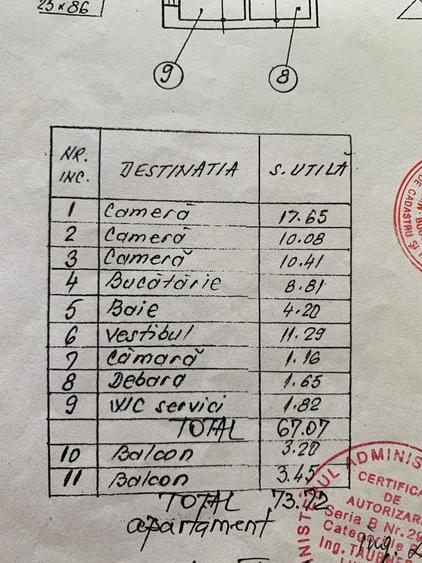 23 x 86
9 8
NR. INC. DESTINATIA S. UTILĂ
1 Cameră 17.65
2 Cameră 10.08
3 Cameră 10.41
4 Bucătărie 8.81
5 Baie 4.20
6 Vestibul 11.29
7 Cămară 1.16
8 Debara 1.65
9 W/C servici 1.82
TOTAL 67.07
10 Balcon 3.20
11 Balcon 3.45
TOTAL 73.72
apartament
DE CADASTRU
ADMINIS
CERTIFICA
DE
AUTORIZAR
Seria B Nr. 29
Categorie
Ing. TAUB